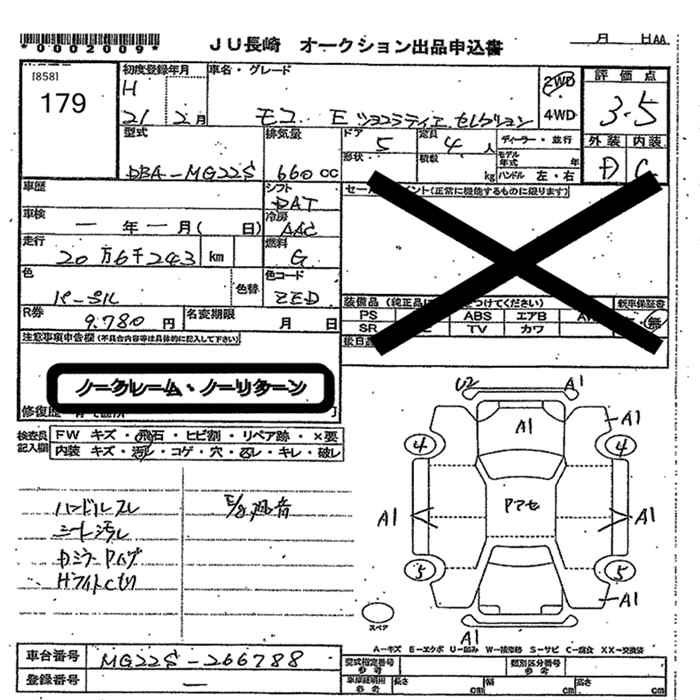 *0002009*
JU長崎 オークション出品申込書
月 日AA
[858]
179
初度登録年月
H
21 2月
車名・グレード
モコ E ショコラティエ セレクション
2WD
4WD
評価点
3.5
外装 内装
D C
型式
DBA-MG22S
排気量
660cc
ドア
5
定員
4人
ディーラー・並行
形状
積数
kg
モデル年式 年
ハンドル 左・右
車歴
シフト
DAT
セールスポイント(正常に機能するものに限ります)
車検
ー年ー月( 日)
冷房
AAC
走行
20万6千243 km
燃料
G
色
パープル
色替
色コード
ZED
装備品(純正品に をつけてください)
新車保証書
PS ABS エアB
無
SR TV カワ
R券
9.780円
名変期限
月 日
注意事項申告欄(不具合内容等は具体的に記入して下さい)
後日品
ノークレーム・ノーリターン
修復歴
検査員記入欄
FW キズ・飛石・ヒビ割・リペア跡・×要
内装 キズ・汚レ・コゲ・穴・スレ・キレ・破レ
ハンドルスレ
シート汚レ
E/g異音
U2 A1
A1 A1
4 4
A1 Pアセ A1
5 5
A1
A1
スペア
A-キズ E-エクボ U-凹み W-補修跡 S-サビ C-腐食 XX-交換済
車台番号
MG22S-266788
登録番号
ー
型式指定番号 参考
類別区分番号 参考
車庫証明用 参考
長さ cm
幅 cm
高さ cm